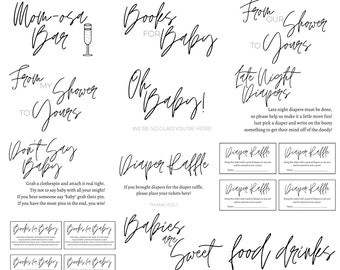 Mom-osa
Bar
Books
FOR
Baby
From
OUR
Shower
TO
Yours
From
MY
Shower
TO
Yours
Oh
Baby!
WE'RE SO GLAD YOU'RE HERE!
Late Night
Diapers
Late night diapers must be done,
so please help us make it a little more fun!
Just pick a diaper and write on the booty
something to get their mind off of the doody!
Don't Say
Baby
Grab a clothespin and attach it real tight.
Try not to say baby with all your might!
If you hear someone say "baby" grab their pin.
If you have the most pins in the end, you win!
Diaper Raffle
If you brought diapers for the diaper raffle,
please place your tickets here!
THANK YOU!
Diaper Raffle
Diaper Raffle
Diaper Raffle
Diaper Raffle
Books for Baby
Books for Baby
Books for Baby
Books for Baby
Babies
are
Sweet
food
drinks